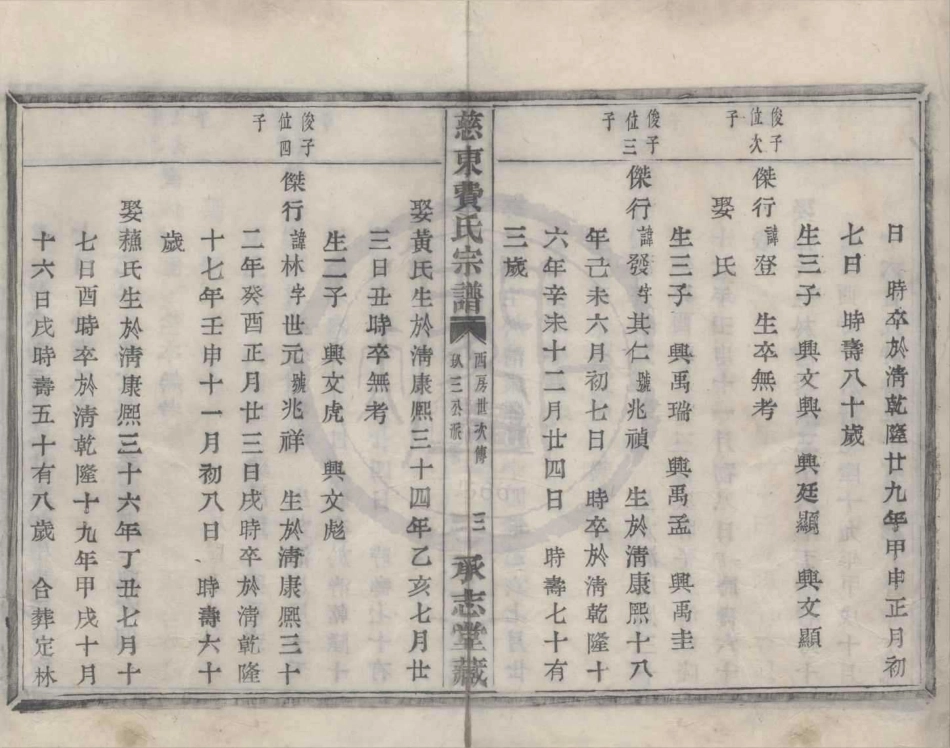 日　時卒於清乾隆廿九年甲申正月初
七日　時壽八十歲
生三子　興文興　興廷顯　興文顯
俊子位次
傑行　諱登　生卒無考
子
娶　氏
生三子　興禹瑞　興禹孟　興禹圭
俊子位三
傑行　諱發字其仁號兆禎　生於清康熙十八
子
年己未六月初七日　時卒於清乾隆十
六年辛未十二月廿四日　時壽七十有
三歲
慈東費氏宗譜
西房世次傳
三公派
三
承志堂藏
娶黃氏生於清康熙三十四年乙亥七月廿
三日丑時卒無考
生二子　興文虎　興文彪
俊子位四
傑行　諱林字世元號兆祥　生於清康熙三十
子
二年癸酉正月廿三日戌時卒於清乾隆
十七年壬申十一月初八日　時壽六十
歲
娶氏生於清康熙三十六年丁丑七月十
七日酉時卒於清乾隆十九年甲戌十月
十六日戌時壽五十有八歲　合葬定林